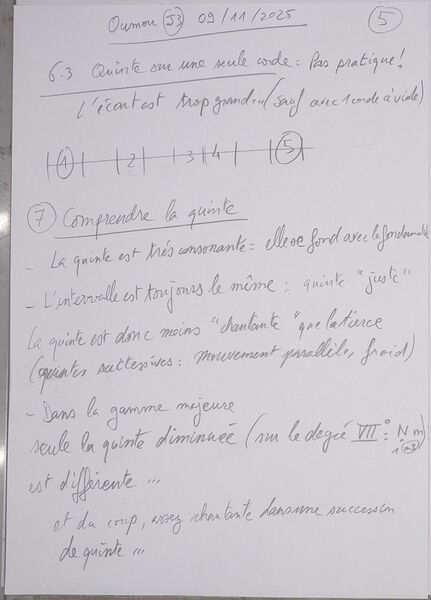 Oumou 53 09/11/2025 5
6.3 Quinte sur une seule corde : Pas pratique !
L'écart est trop grand... (sauf avec 1 corde à vide)
1 2 3 4 5
7 Comprendre la quinte
- La quinte est très consonante = elle se fond avec la fondamentale
- L'intervalle est toujours le même : quinte "juste"
La quinte est donc moins "chantante" que la tierce
(quintes successives : mouvement parallèle, froid)
- Dans la gamme majeure
seule la quinte diminuée (sur le degré VII° :
est différente ...
et du coup, assez chantante dans une succession
de quinte ...